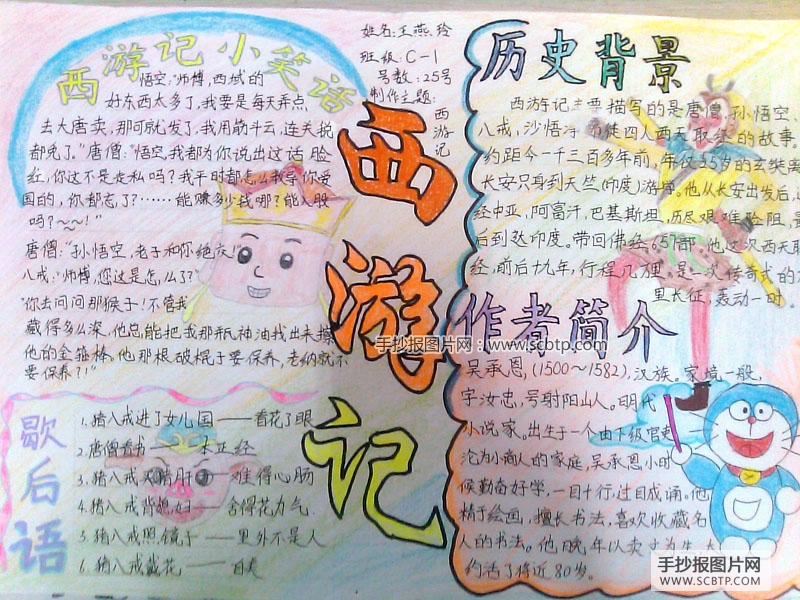 西游记小笑话
悟空:"师傅,西域的
好东西太多了,我要是每天弄点
去大唐卖,那可就发了,我用筋斗云,连关税
都免了。"唐僧:"悟空,我都为你说出这话脸
红,你这不是走私吗?我平时都怎么教导你爱
国的,你都忘了?……能赚多少钱哪?能入股
吗?~~!"
唐僧:"孙悟空,老子和你绝交!"
八戒:"师傅,您这是怎么了?"
"你去问问那猴子!不管我
藏得多么深,他总能把我那瓶神油找出来擦
他的金箍棒,他那根破棍子要保养,老衲就不
要保养?!"
歇后语
1.猪八戒进了女儿国——看花了眼
2.唐僧看书——本正经
3.猪八戒
难得心肠
4.猪八戒背媳妇——舍得花力气
5.猪八戒照镜子——里外不是人
6.猪八戒戴花——自美
姓名:王燕玲
班级:C-1
号数:25号
制作主题:
西游记
西游记
历史背景
西游记主要描写的是唐僧,孙悟空、
八戒,沙悟净师徒四人西天取经的故事。
约距今一千三百多年前,年仅25岁的玄奘离
长安只身到天竺(印度)游学。他从长安出发后,
经中亚,阿富汗,巴基斯坦,历尽艰难险阻,最
后到达印度。带回佛经657部,他这次西天取
经,前后十九年,行程几万里,是一次传奇式的
里长征,轰动一时。
作者简介
吴承恩,(1500~1582),汉族。家境一般,
字汝忠,号射阳山人。明代
小说家。出生于一个由下级官吏
沦为小商人的家庭,吴承恩小时
候勤奋好学,一目十行,过目成诵。他
精于绘画,擅长书法,喜欢收藏名
人的书法。他晚年以卖文为生,大
约活了将近80岁。
手抄报图片网:www.scbtp.com
手抄报图片网
WWW.SCBTP.COM